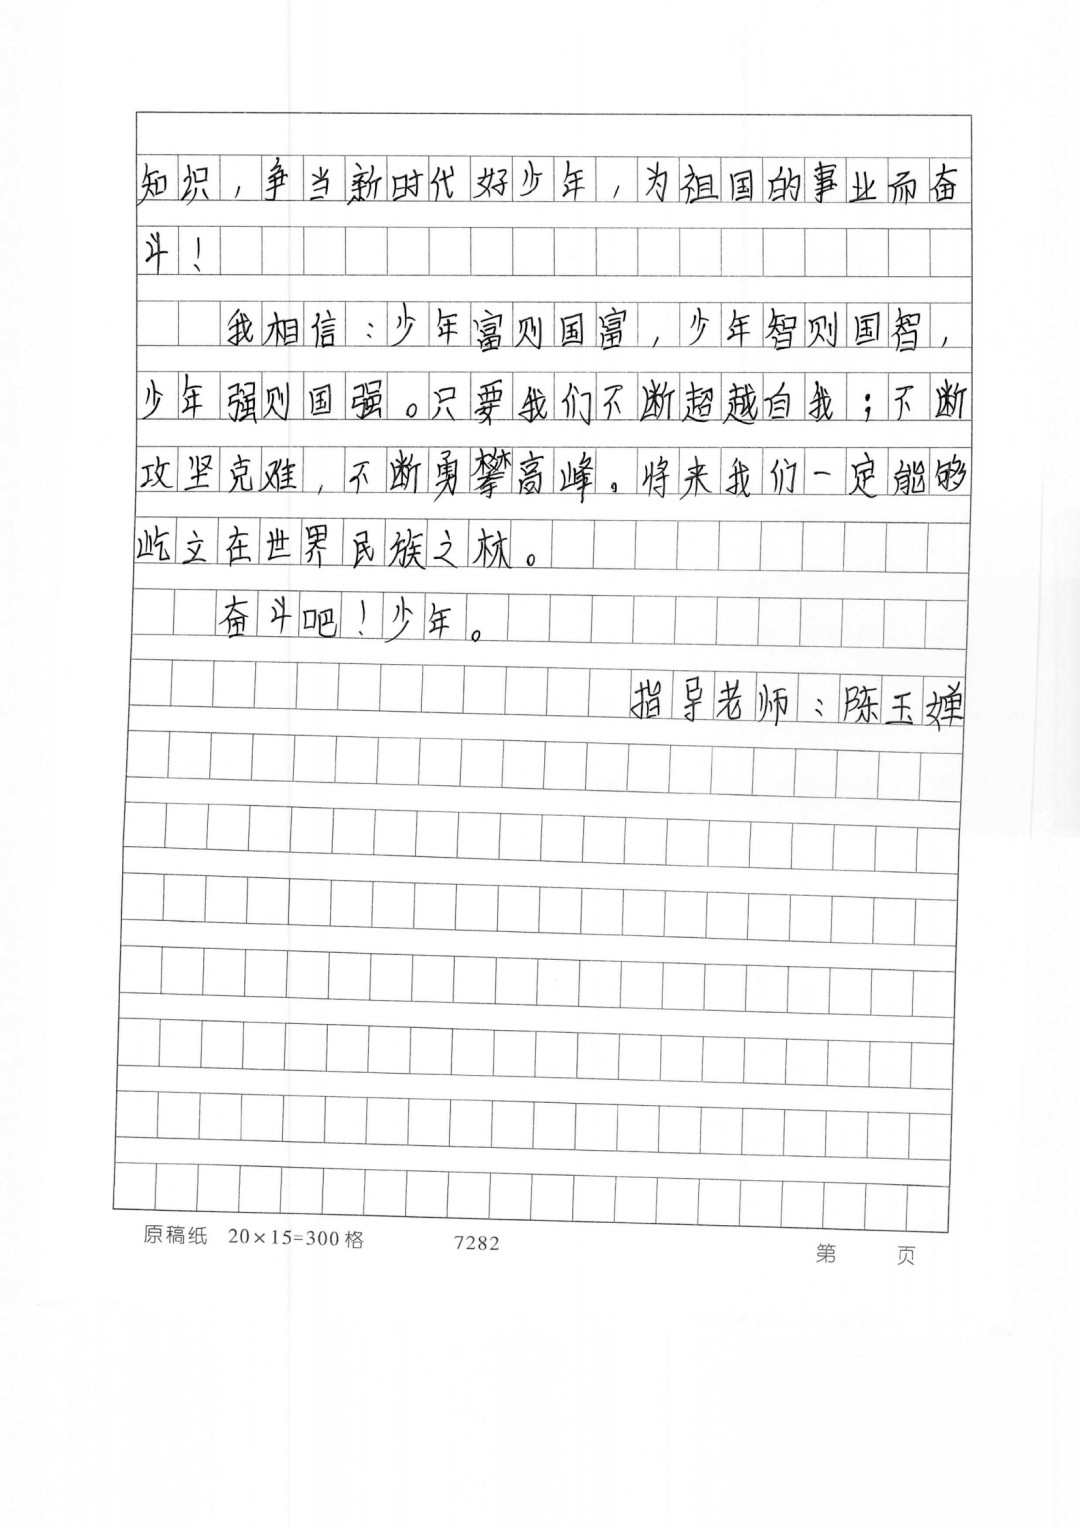 知识，争当新时代好少年，为祖国的事业而奋
斗！
我相信：少年富则国富，少年智则国智，
少年强则国强。只要我们不断超越自我；不断
攻坚克难，不断勇攀高峰。将来我们一定能够
屹立在世界民族之林。
奋斗吧！少年。
指导老师：陈玉婵
原稿纸 20×15=300格 7282 第 页